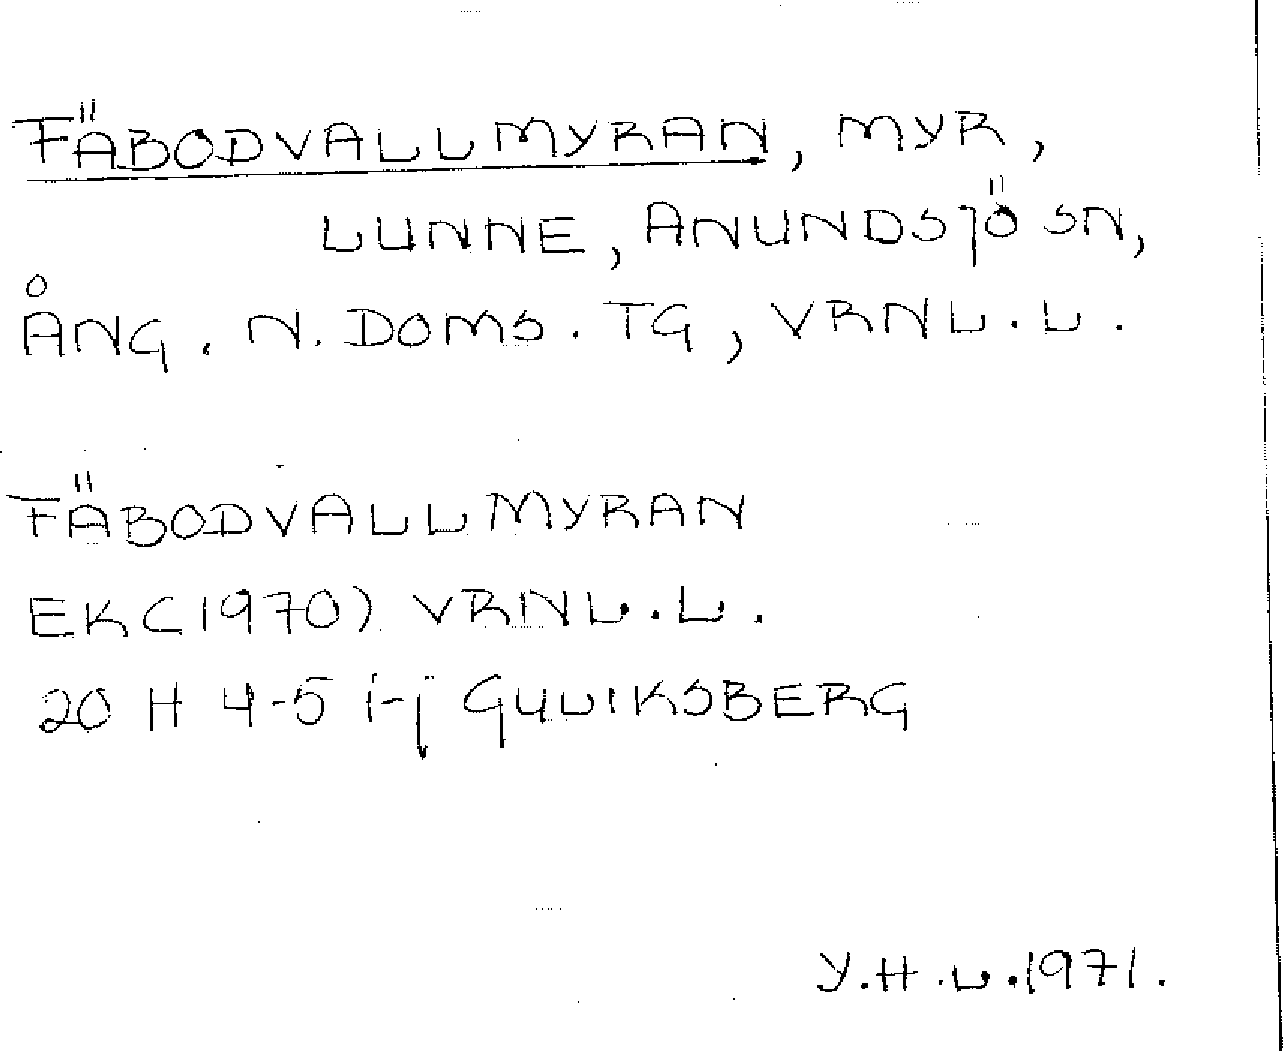 FÄBODVALLMYRAN, MYR,
LUNNE, ANUNDSJÖ SN,
ÅNG. N. DOMS. TG, VRNL.L.
FÄBODVALLMYRAN
EK(1970) VRNL.L.
20 H 4-5 i-j GULLVIKSBERG
Y.H.L.1971.